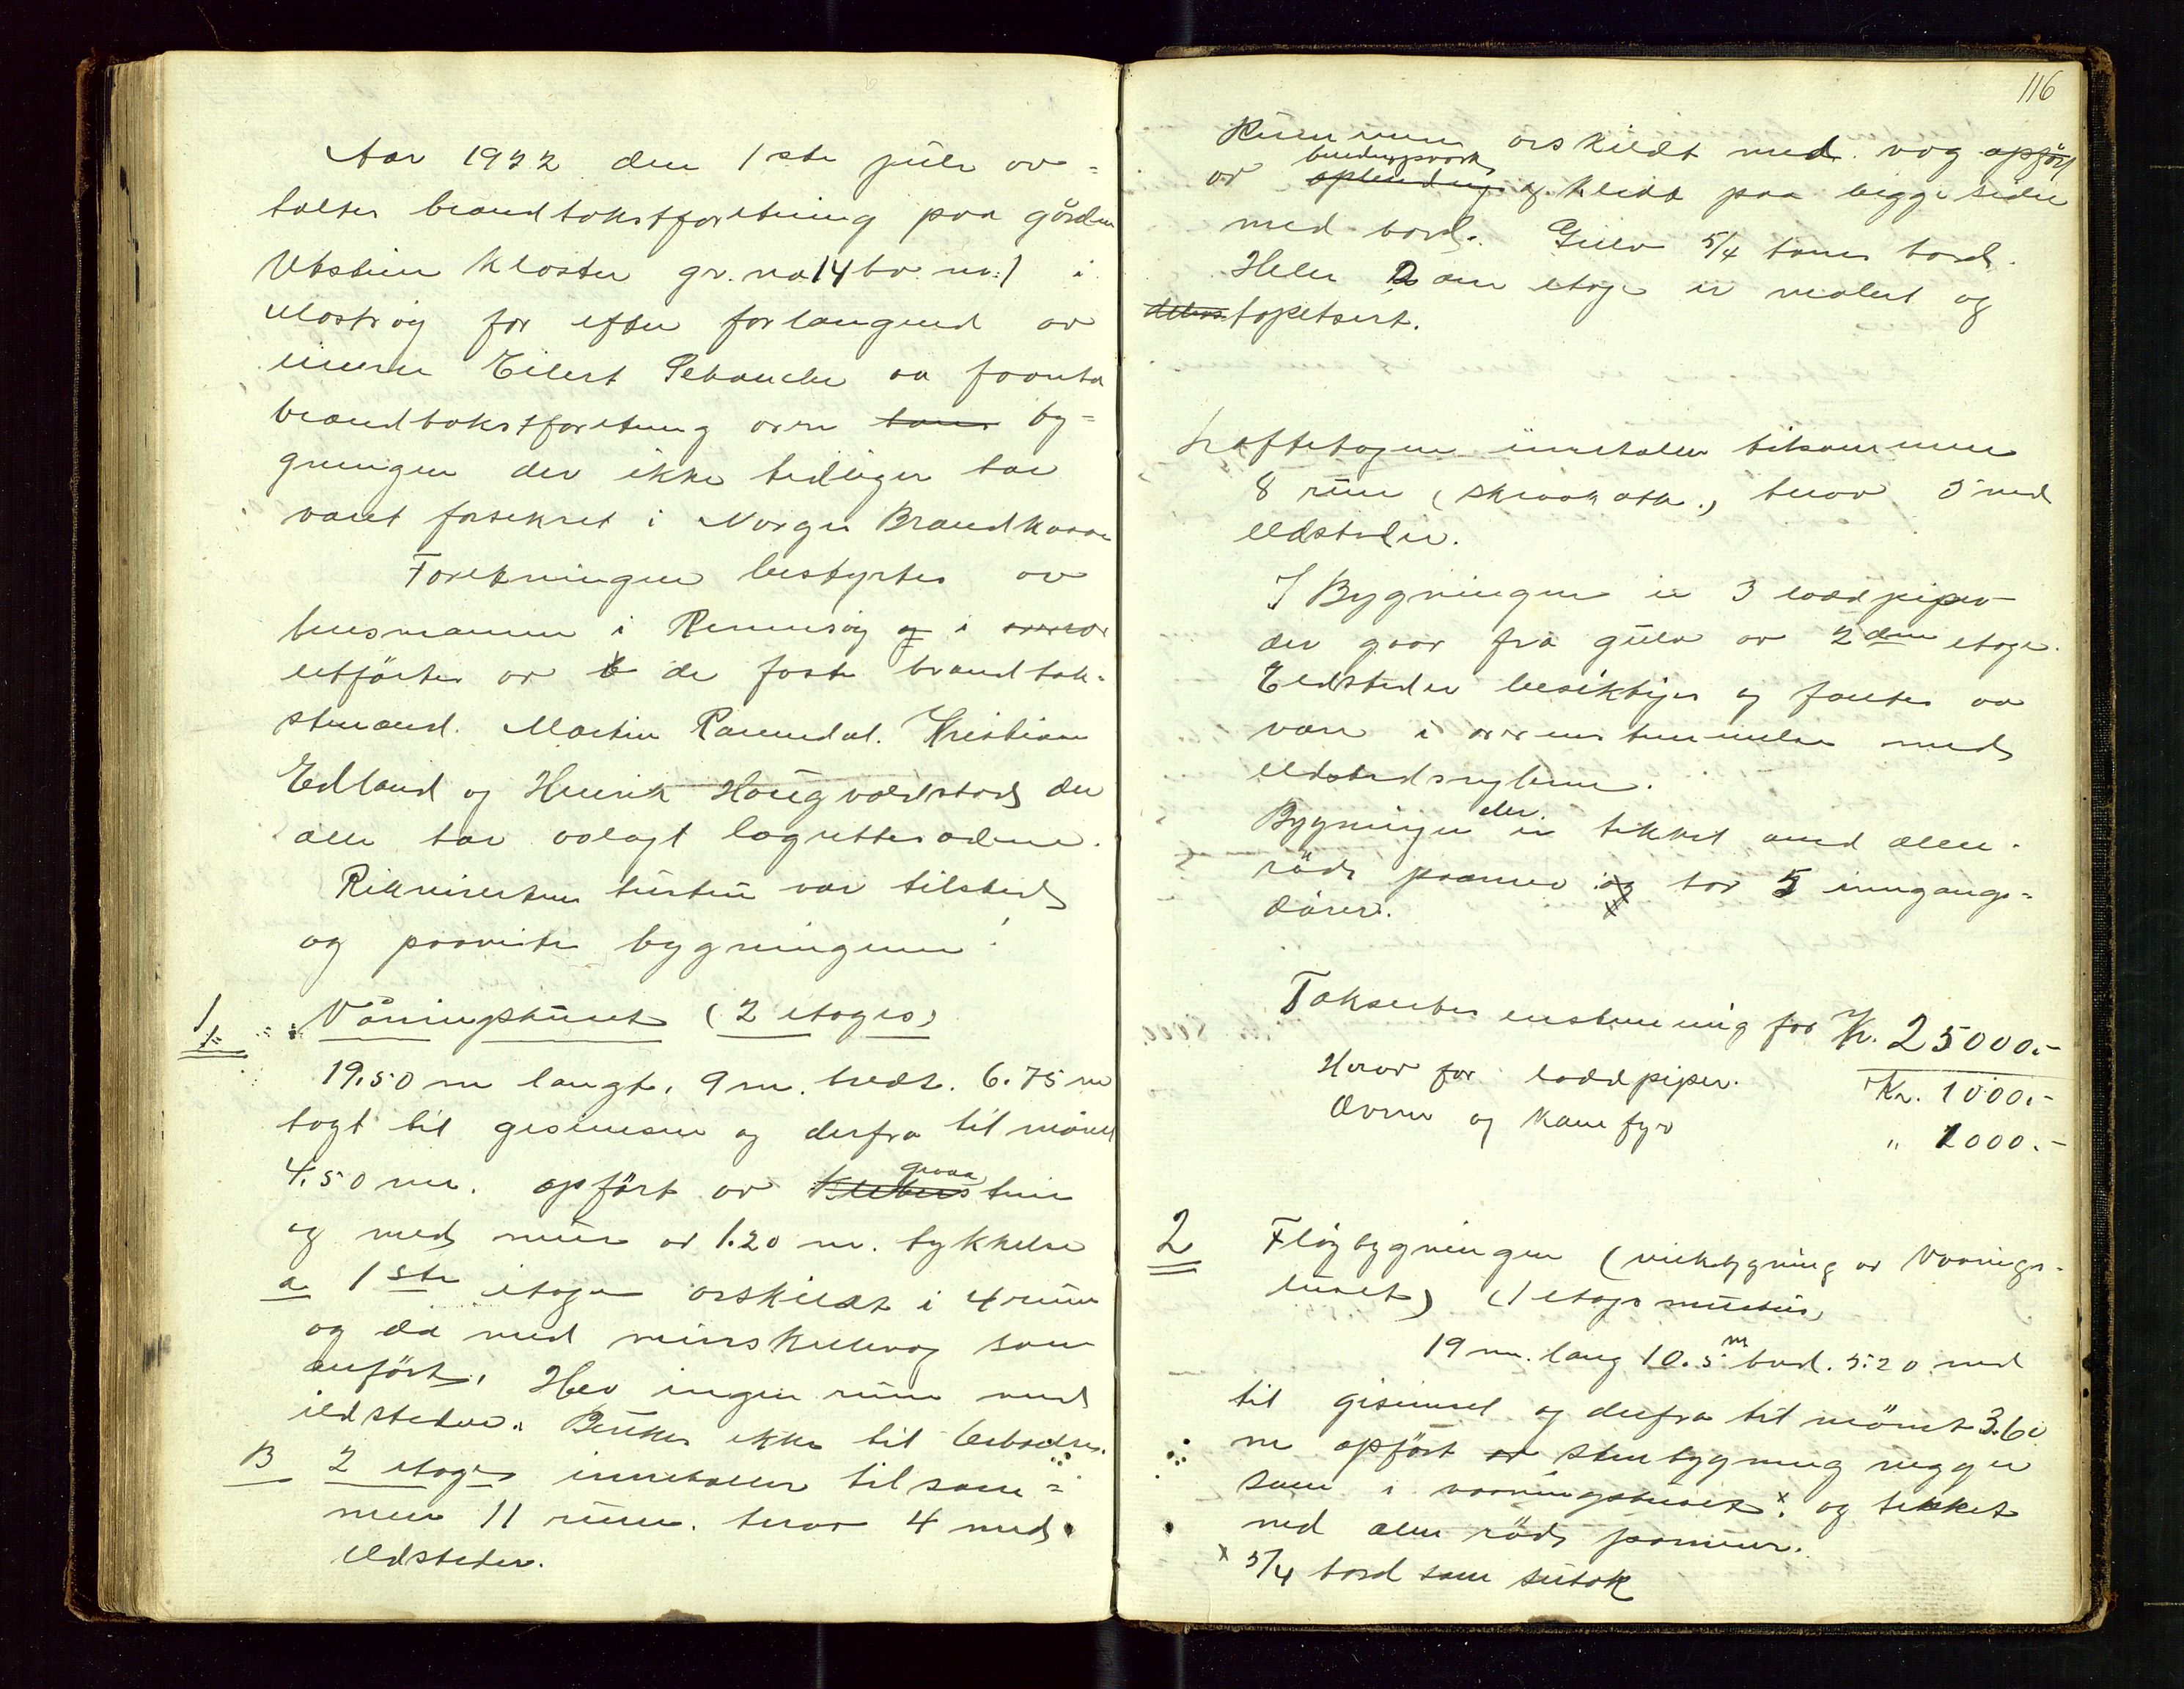 Aar 1922 den 1ste juli av=
holtes brandtakstforretning paa gården
Utstein Kloster gr. no 14 br. no: 1 i
Mosterøy for efter forlangend av
eieren Eilert Schanche aa foreta
brandtakstforretning over hans by=
gninger der ikke tidliger har
været forsikret i Norges Brandkasse
Forretningen bestyrtes av
lensmannen i Rennesøy og
utførtes av de faste brandtak=
stmænd. Martin Rammdal. Kristian
Edland og Henrik Hougvaldstad der
alle har avlagt lagrettesedene.
Rikvirenten husten var tilsted
og paaviste bygningene:
1 Våningshuset (2 etages)
19.50 m langt, 9 m. bredt. 6.75 m
høgt til gesimsen og derfra til mønet
4.50 m. opført av Kleber graa sten
og med mur av 1.20 m. tykkelse
a 1ste etage avskildt i 4 rum
og da med murskillevæg som
anført. Her ingen rum med
ildsteder. Brukes ikke til beboelse.
B 2 etage inneholder tilsam=
men 11 rum. herav 4 med
Ildsteder.
116
Rummene avskildt med væg opført
av bindingsverk og klædt paa begge sider
med bord. Gulv 5/4 toms bord.
Hele 2 den etage er malet og
delvis tapetsert.
Loftetagen inneholder tilsammen
8 rum (skraatak.) herav 3 med
Ildsteder.
I Bygningen er 3 loddpiper
der gaar fra gulv av 2den etage.
Ildsteder besiktiges og fantes aa
være i overensstemmelse med
Ildstedsreglene.
Bygningen er tekket med alm.
røde panner og har 5 inngangs=
dører.
Takseres enstemmig for Kr. 25000.-
Herav for loddpiper. Kr. 1000.-
Ovner og Komfyr " 1000.-
2 Fløybygningen (vinkelbygning av Vaanings=
huset) (1 etages murhus)
19 m. lang 10.5 m bred. 5.20 med
til gesimsel og derfra til mønet 3.60
m opført av stenbygning vegger
som i vaaningshuset x. og tekket
med alm røde panner.
x 5/4 bord som sutak